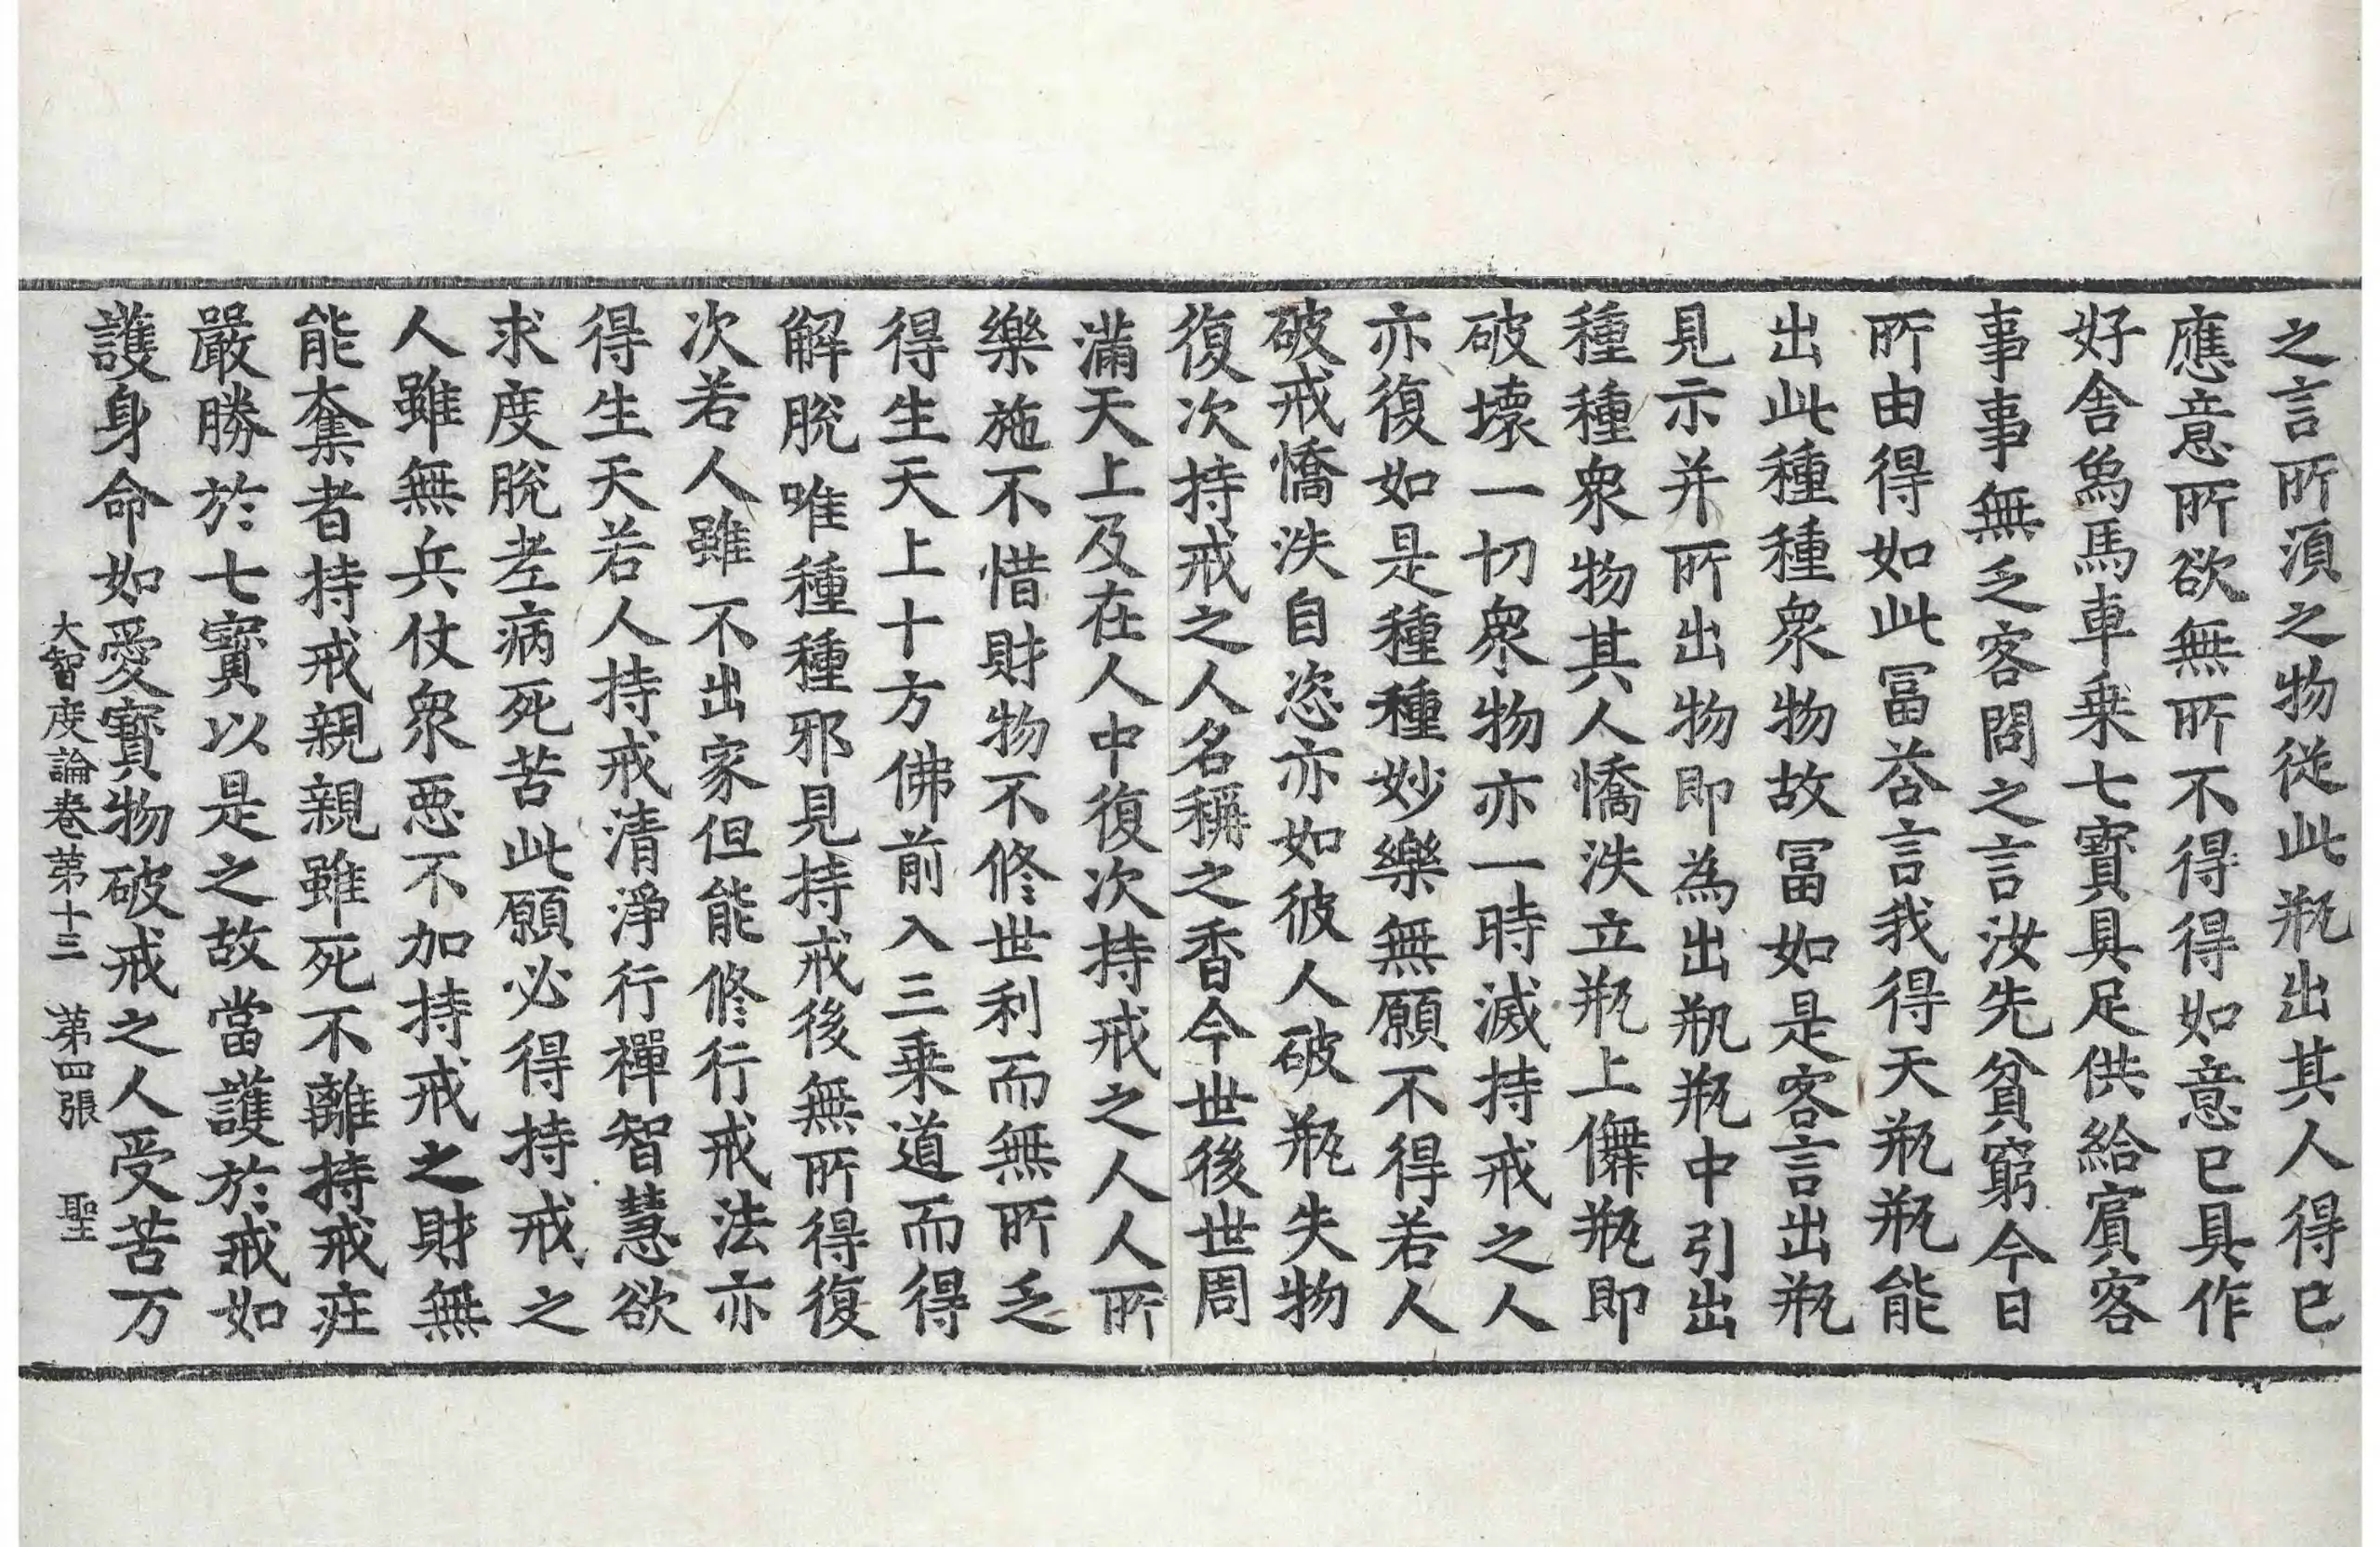 之言所湏之物從此瓶出其人得已
應意所欲無所不得得如意已具作
好舎象馬車乗七寳具足供給賔客
事事無乏客問之言汝先貧窮今日
所由得如此冨荅言我得天瓶瓶能
出此種種衆物故冨如是客言出瓶
見示并所出物即為出瓶瓶中引出
種種衆物其人憍泆立瓶上儛瓶即
破壊一切衆物亦一時滅持戒之人
亦復如是種種妙樂無願不得若人
破戒憍泆自恣亦如彼人破瓶失物
復次持戒之人名稱之香今世後世周
滿天上及在人中復次持戒之人人所
樂施不惜財物不修世利而無所乏
得生天上十方佛前入三乗道而得
解脫唯種種邪見持戒後無所得復
次若人雖不出家但能修行戒法亦
得生天若人持戒清淨行禪智慧欲
求度脫老病死苦此願必得持戒之
人雖無兵仗衆惡不加持戒之財無
能奪者持戒親親雖死不離持戒莊
嚴勝於七寳以是之故當護於戒如
護身命如愛寳物破戒之人受苦万
大智度論卷第十三 第四張 聖